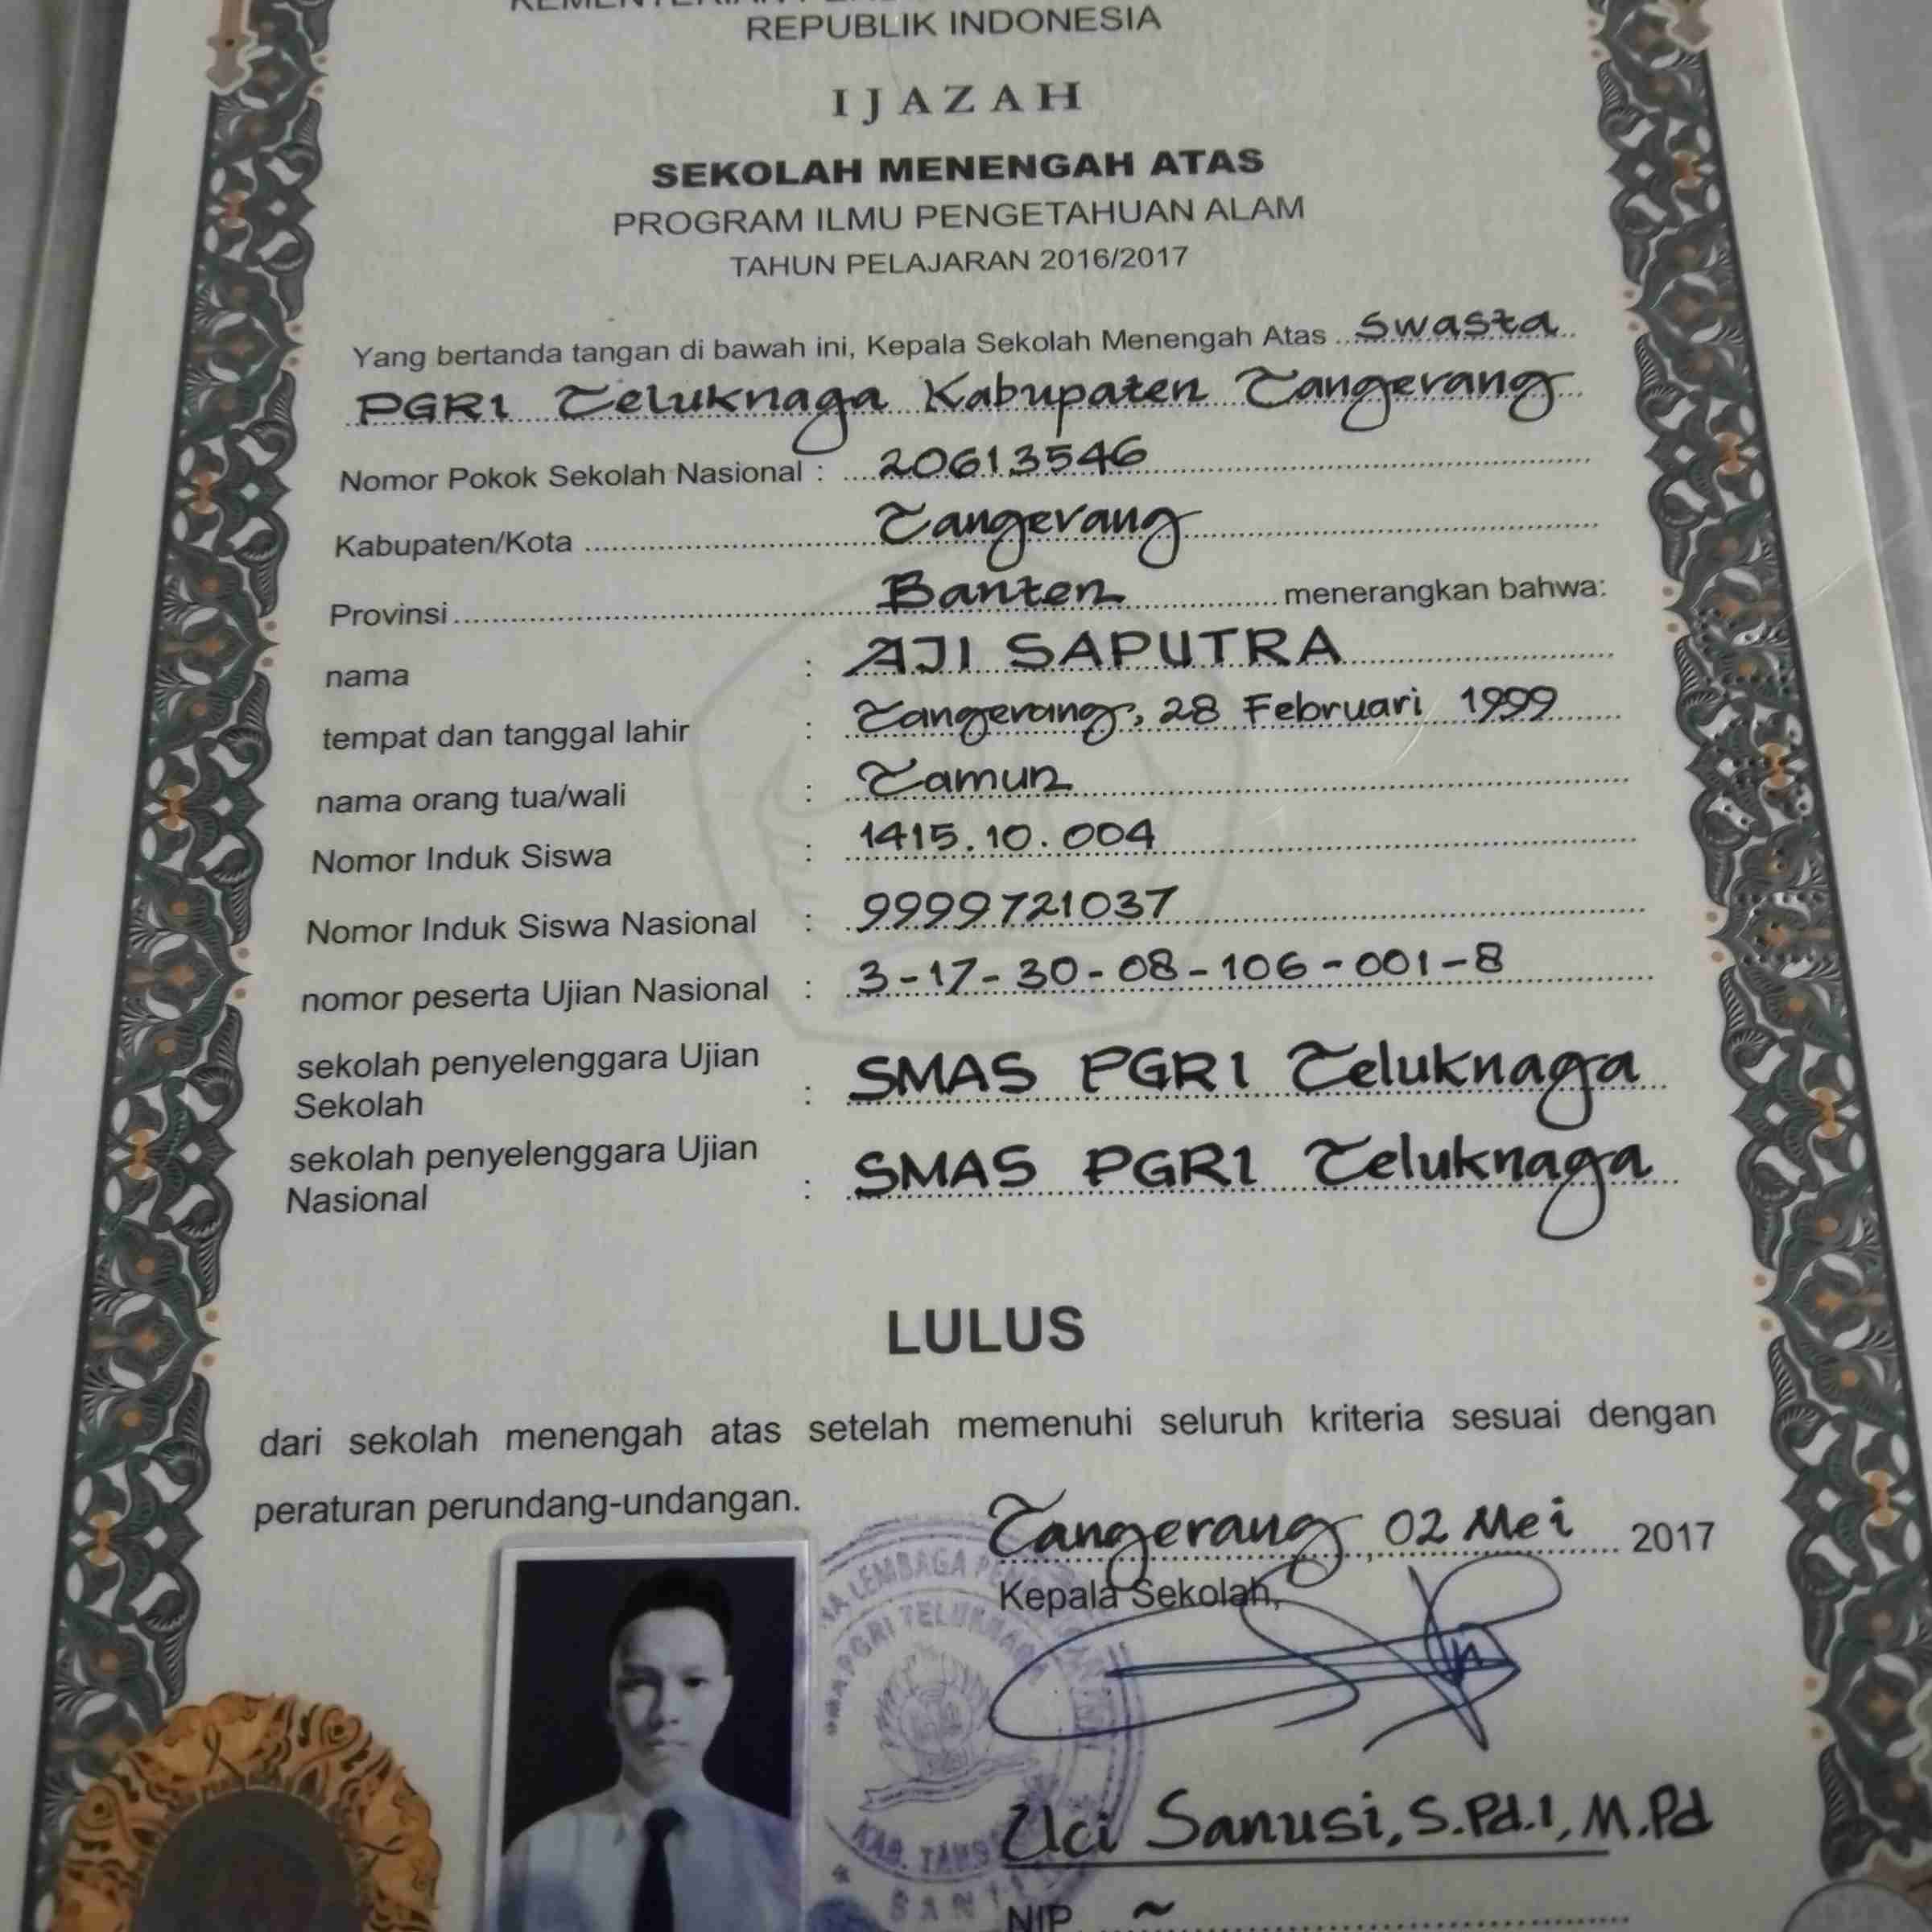 REPUBLIK INDONESIA
IJAZAH
SEKOLAH MENENGAH ATAS
PROGRAM ILMU PENGETAHUAN ALAM
TAHUN PELAJARAN 2016/2017
Yang bertanda tangan di bawah ini, Kepala Sekolah Menengah Atas Swasta
PGRI Teluknaga Kabupaten Tangerang
Nomor Pokok Sekolah Nasional : 20613546
Kabupaten/Kota Tangerang
Provinsi Banten menerangkan bahwa:
nama : AJI SAPUTRA
tempat dan tanggal lahir : Tangerang, 28 Februari 1999
nama orang tua/wali : Tamun
Nomor Induk Siswa : 1415.10.004
Nomor Induk Siswa Nasional : 9999721037
nomor peserta Ujian Nasional : 3-17-30-08-106-001-8
sekolah penyelenggara Ujian
Sekolah : SMAS PGRI Teluknaga
sekolah penyelenggara Ujian
Nasional : SMAS PGRI Teluknaga
LULUS
dari sekolah menengah atas setelah memenuhi seluruh kriteria sesuai dengan
peraturan perundang-undangan.
Tangerang, 02 Mei 2017
Kepala Sekolah,
LEMBAGA
PGRI TELUKNAGA
KAB.
Uci Sanusi, S.Pd.I, M.Pd
NIP ~